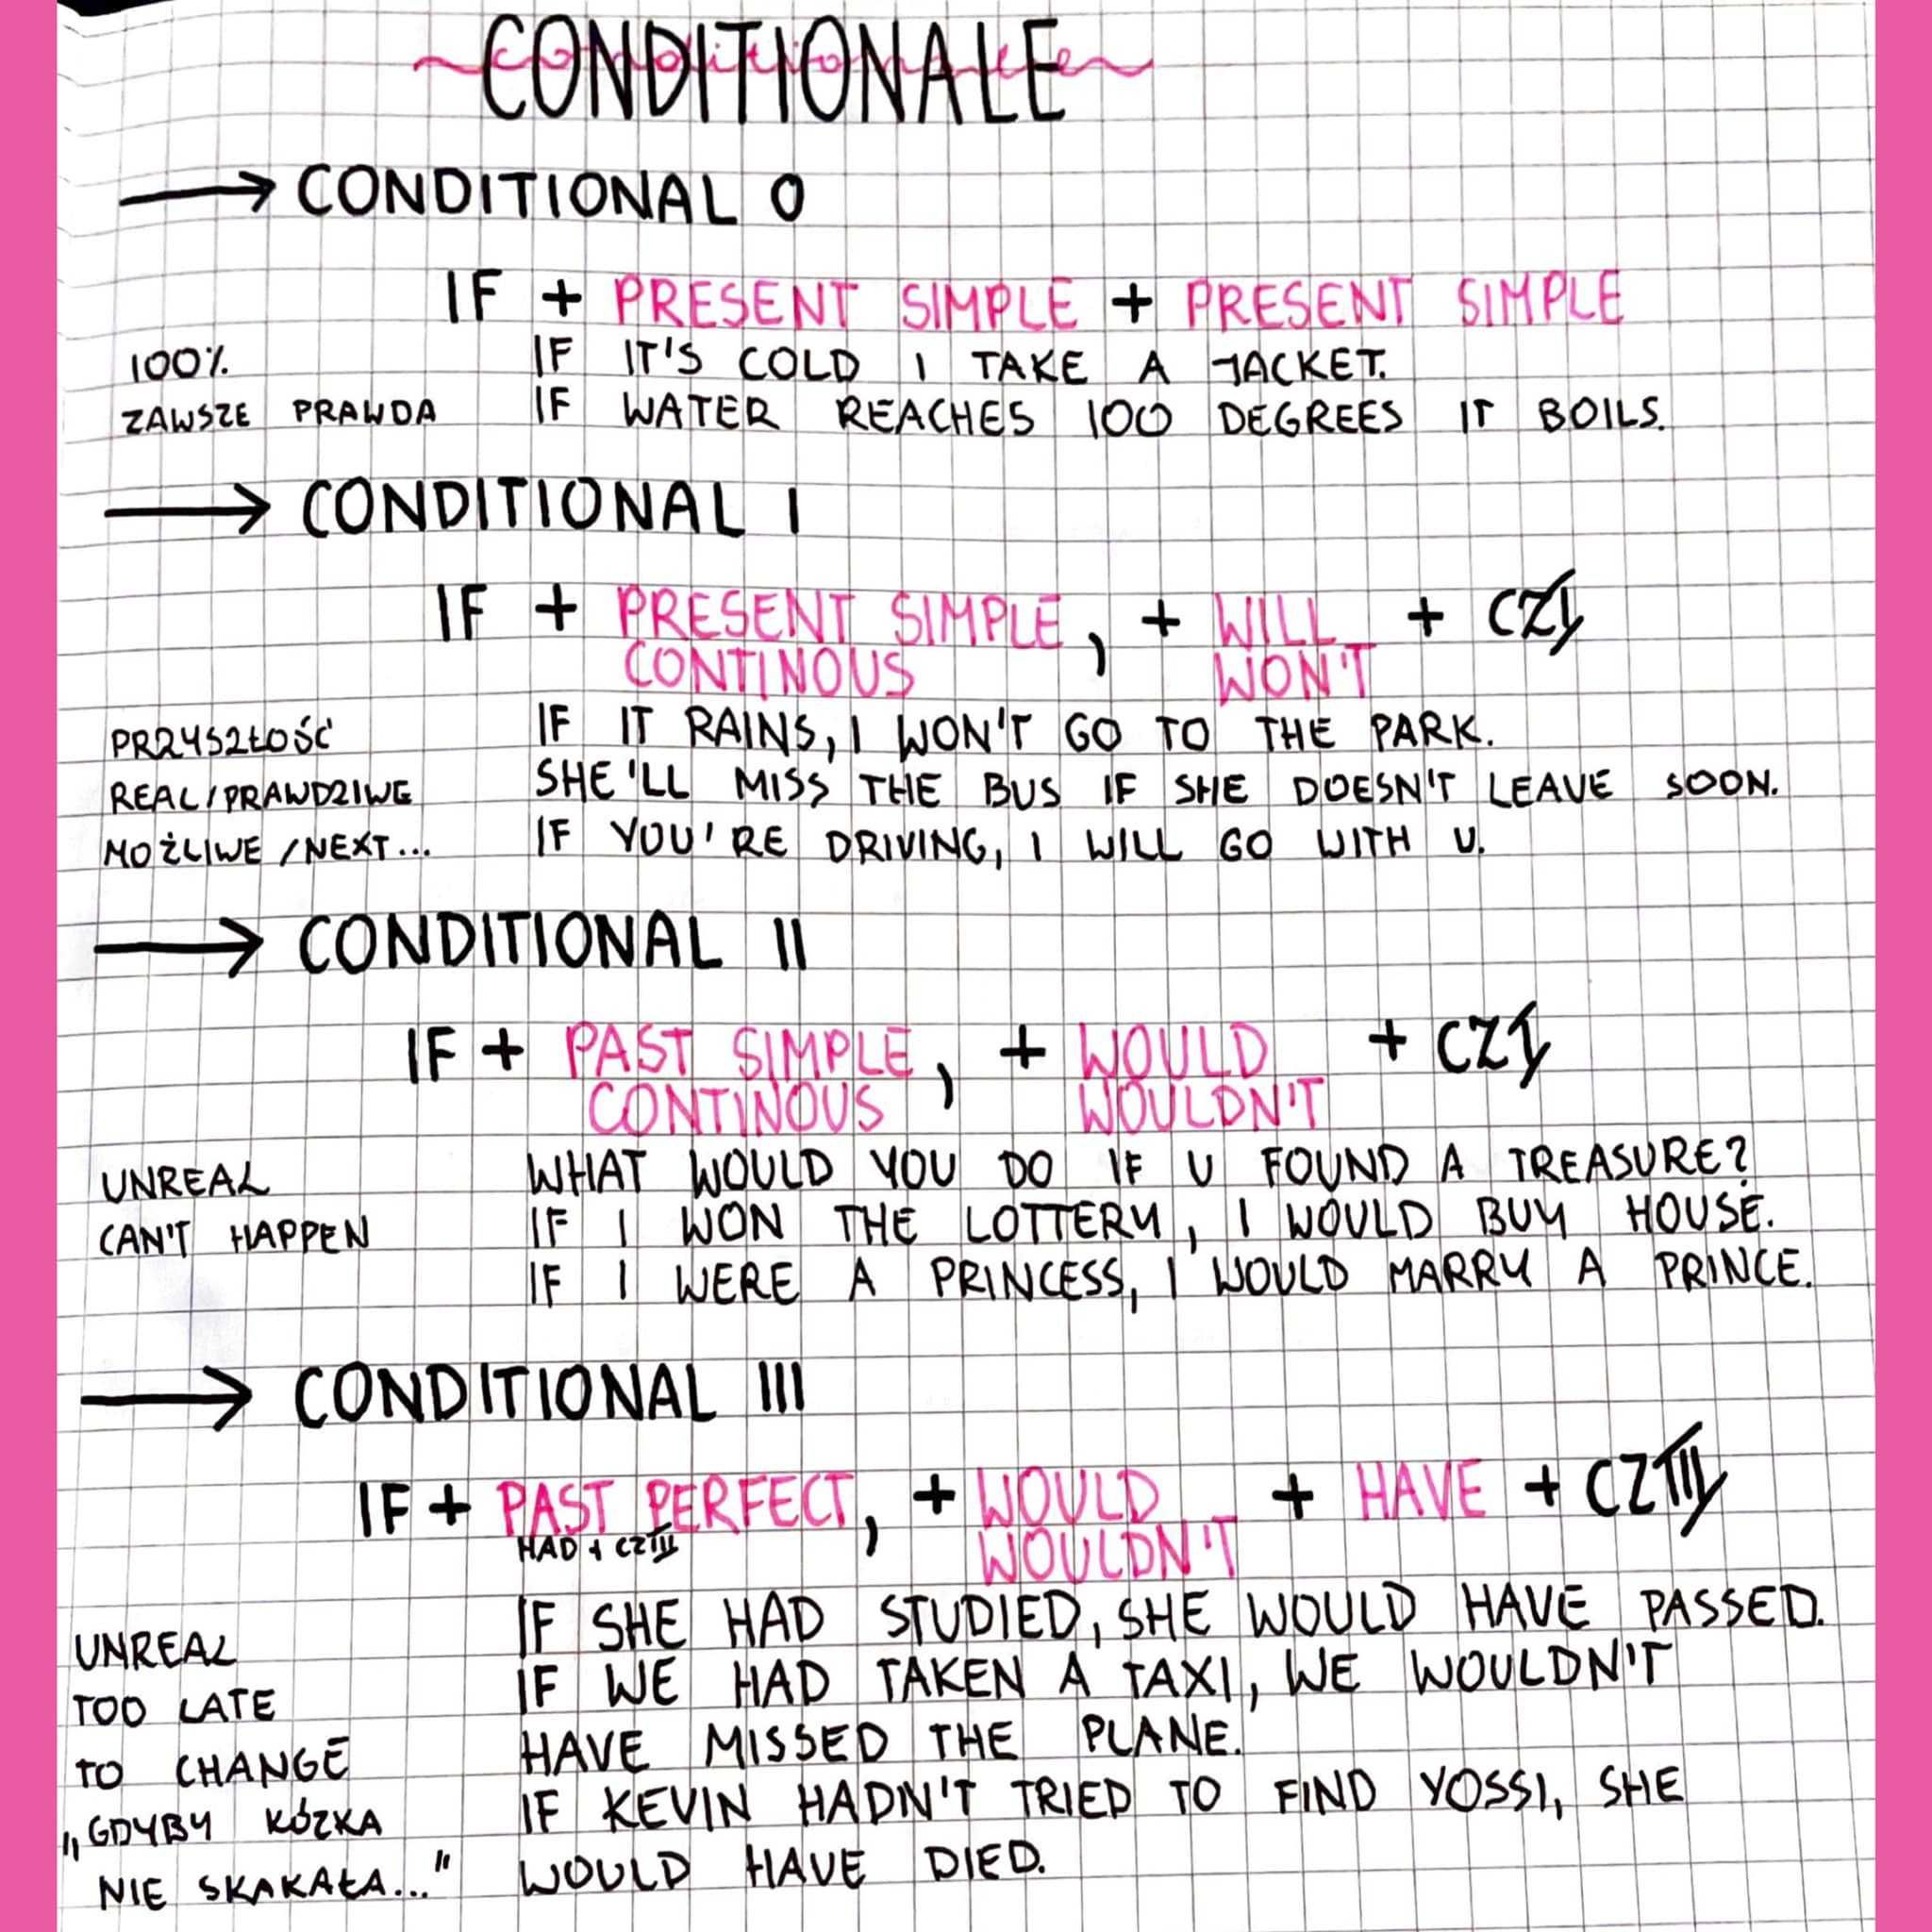 CONDITIONALE
→ CONDITIONAL 0
IF + PRESENT SIMPLE + PRESENT SIMPLE
100% IF IT'S COLD I TAKE A JACKET.
ZAWSZE PRAWDA IF WATER REACHES 100 DEGREES IT BOILS.
→ CONDITIONAL I
IF + PRESENT SIMPLE, + WILL + CZ I
CONTINOUS WON'T
PRZYSZŁOŚĆ IF IT RAINS, I WON'T GO TO THE PARK.
REAL/PRAWDZIWE SHE'LL MISS THE BUS IF SHE DOESN'T LEAVE SOON.
MOŻLIWE/NEXT... IF YOU'RE DRIVING, I WILL GO WITH U.
→ CONDITIONAL II
IF + PAST SIMPLE, + WOULD + CZ I
CONTINOUS WOULDN'T
UNREAL WHAT WOULD YOU DO IF U FOUND A TREASURE?
CAN'T HAPPEN IF I WON THE LOTTERY, I WOULD BUY HOUSE.
IF I WERE A PRINCESS, I WOULD MARRY A PRINCE.
→ CONDITIONAL III
IF + PAST PERFECT, + WOULD + HAVE + CZ III
HAD + CZ III WOULDN'T
IF SHE HAD STUDIED, SHE WOULD HAVE PASSED.
UNREAL IF WE HAD TAKEN A TAXI, WE WOULDN'T
TOO LATE HAVE MISSED THE PLANE.
TO CHANGE IF KEVIN HADN'T TRIED TO FIND YOSSI, SHE
„GDYBY KÓZKA WOULD HAVE DIED.
NIE SKAKAŁA..."